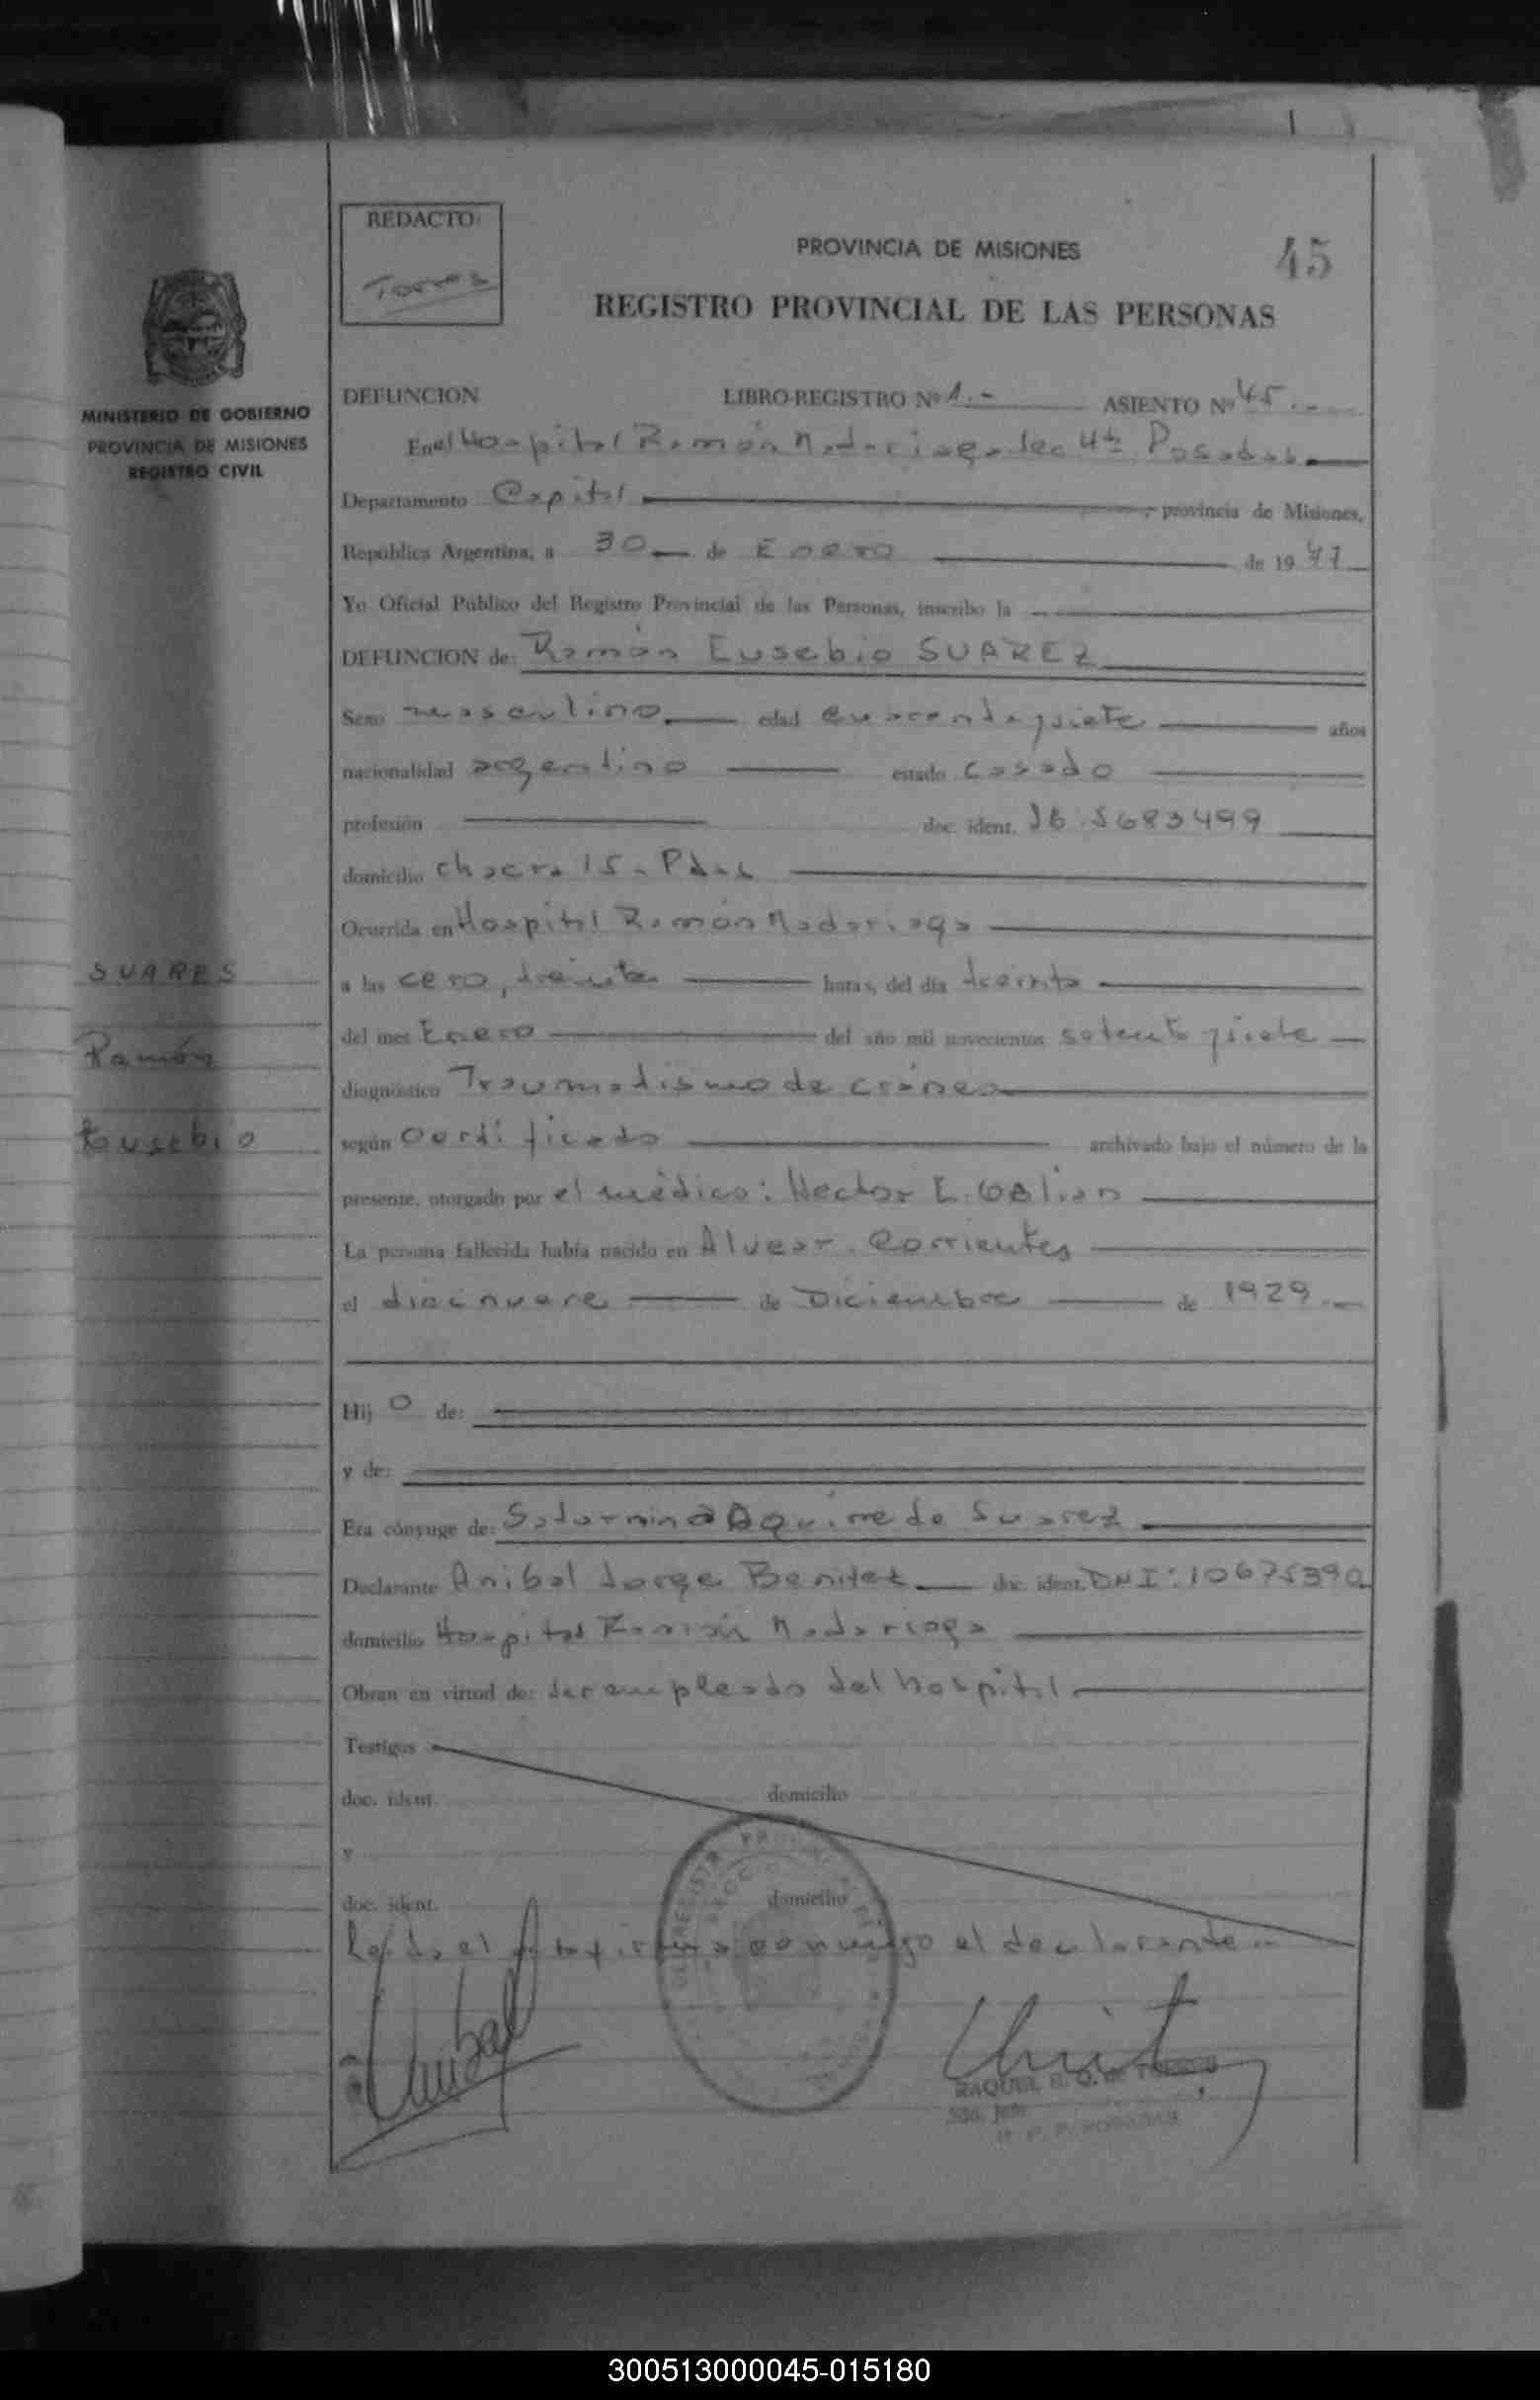 REDACTO:
Torres
PROVINCIA DE MISIONES
45
REGISTRO PROVINCIAL DE LAS PERSONAS
MINISTERIO DE GOBIERNO
PROVINCIA DE MISIONES
REGISTRO CIVIL
DEFUNCION LIBRO-REGISTRO Nº 1.- ASIENTO Nº 45.-
En el Hospital Ramón Madariaga sec 4ta Posadas
Departamento Capital , provincia de Misiones,
República Argentina, a 30 de Enero de 1977
Yo Oficial Público del Registro Provincial de las Personas, inscribo la
DEFUNCION de: Ramón Eusebio SUAREZ
Sexo masculino edad cuarenta y siete años
nacionalidad argentino estado casado
profesión doc. ident. 5683499
domicilio chacra 15 - Pdas
Ocurrida en Hospital Ramón Madariaga
SUARES
Ramón
Eusebio
a las cero, treinta horas, del día treinta
del mes Enero del año mil novecientos setenta y siete
diagnóstico Traumatismo de cráneo
según Certificado archivado bajo el número de la
presente, otorgado por el médico: Hector E.
La persona fallecida había nacido en Alvear - Corrientes
el diecinueve de Diciembre de 1929.-
Hij o de:
y de:
Era cónyuge de: Saturnina Aguirre de Suarez
Declarante Anibal Jorge Benitez doc. ident. DNI: 10675390
domicilio Hospital Ramón Madariaga
Obran en virtud de: ser empleado del hospital
Testigos
doc. ident. domicilio
y
doc. ident. domicilio
Leída el acta firma conmigo el declarante.-
RAQUEL
300513000045-015180